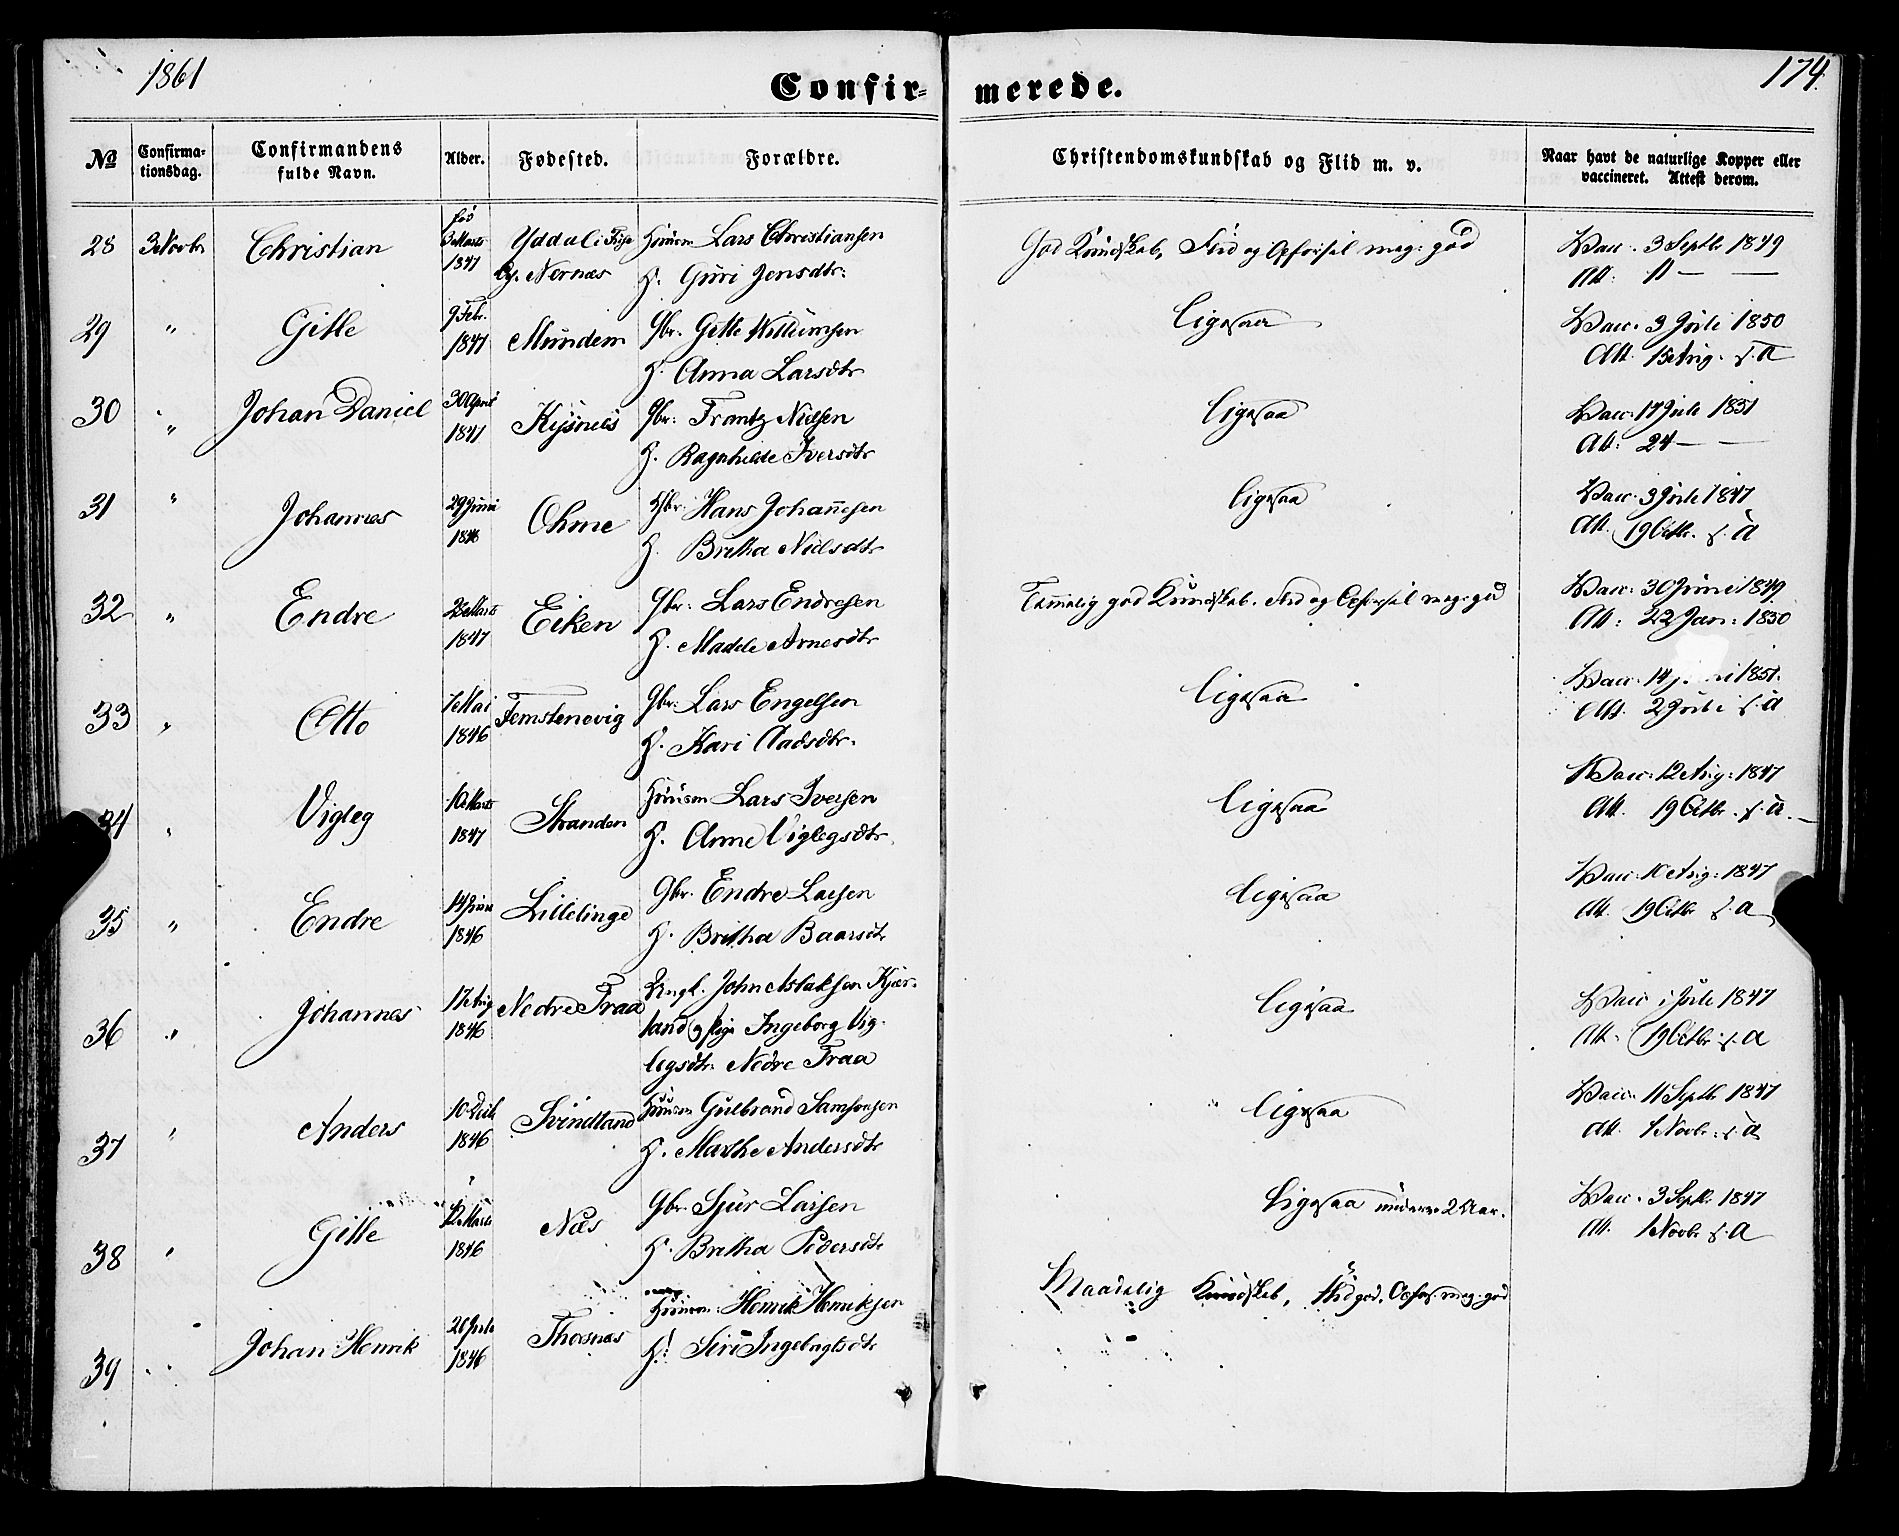 1861
Confirmerede.
174.
№ Confirmationsdag. Confirmandens fulde Navn. Alder. Fødested. Forældre. Christendomskundskab og Flid m. v. Naar havt de naturlige Kopper eller vaccineret. Attest derom.
28 3 Novbr Christian fød 3 Marts 1847 Nornæs Huusm Lars Christiansen God Kundskab, Flid og Opførsel meg: god Vacc. 3 Septb 1849
H. Guri Jensdtr: Att: 11 — —
29 " Gitle 9 Febr. 1847 Mundem Gbr. Gitle Willumsen Ligesaa Vacc. 3 Juli 1850
H. Anna Larsdtr Att. 15 Aug. s. A
30 " Johan Daniel 30 April 1847 Kysnes Gbr: Frantz Nielsen Ligesaa Vacc. 17 Juli 1851
H. Ragnhilde Iversdtr Att: 24 — —
31 " Johannes 29 Juni 1846 Ohme Gbr. Hans Johannesen Ligesaa Vacc. 3 Juli 1847
H. Britha Nielsdtr Att. 19 Octbr. s. A
32 " Endre Marts 1847 Eiken Gbr: Lars Endresen Temmelig god Kundskab. Flid og Opførsel meg: god Vacc: 30 Juni 1849
H. Madele Arnesdtr Att: 22 Jan: 1850
33 " Otto 1 Mai 1846 Femstenevig Gbr: Lars Engelsen Ligesaa Vacc. 14 1851.
H. Kari Aadsdtr. Att. 2 Juli s. A
34 " Vigleg 10 Marts 1847 Stranden Huusm Lars Iversen Ligesaa Vacc: 12 Aug: 1847
H. Anne Viglegsdtr. Att. 19 Octbr. s. A.
35 " Endre 14 Juni 1846 Lillelinge Gbr. Endre Larsen Ligesaa Vacc. 10 Aug: 1847
H. Britha Baarsdtr Att. 19 Octbr s. A
36 " Johannes 17 Aug 1846 Nedre Traa Ungk. John Aslaksen Kjær- Ligesaa Vacc 1 Juli 1847
land og Pige Ingeborg Vig- Att. 19 Octbr s. A
legsdtr. Nedre Traa
37 " Anders 10 Decb 1846 Svindland Huusm Gulbrand Samsonsen Ligesaa Vacc. 11 Septb 1847
H. Marthe Andersdtr Att. 1 Novbr. s. A
38 " Gitle 12 Marts 1846 Næs Gbr. Sjur Larsen Ligesaa underv. 2 Aar. Vacc. 3 Septb. 1847
H. Britha Pedersdtr Att. 1 Novbr s. A
39 " Johan Henrik 1846 Thorsnæs Huusm. Henrik Henriksen Maadelig Kundskab, Flid god, Opførs meg. god
H. Siri Ingebrigtsdtr